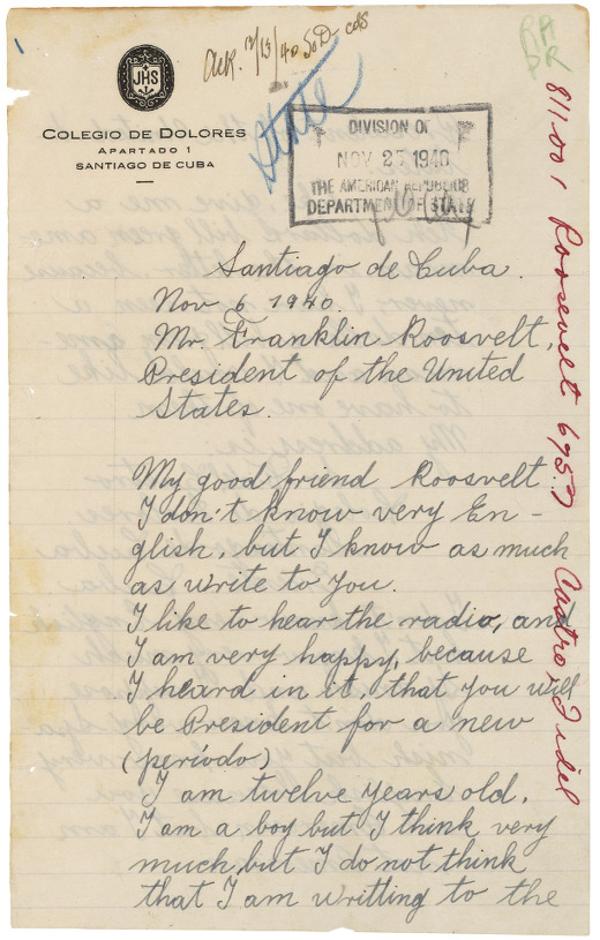 Ack. 12/13/40 SoD cds
RA
DR
JHS
COLEGIO DE DOLORES
APARTADO 1
SANTIAGO DE CUBA
State
DIVISION OF
NOV 25 1940
THE AMERICAN REPUBLICS
DEPARTMENT OF STATE
811.001 Roosevelt 6957
Castro, Fidel
Santiago de Cuba.
Nov 6 1940.
Mr. Franklin Roosvelt,
President of the United
States.
My good friend Roosvelt.
I don't know very En-
glish, but I know as much
as write to you.
I like to hear the radio, and
I am very happy, because
I heard in it, that you will
be President for a new
(período)
I am twelve years old.
I am a boy but I think very
much, but I do not think
that I am writting to the